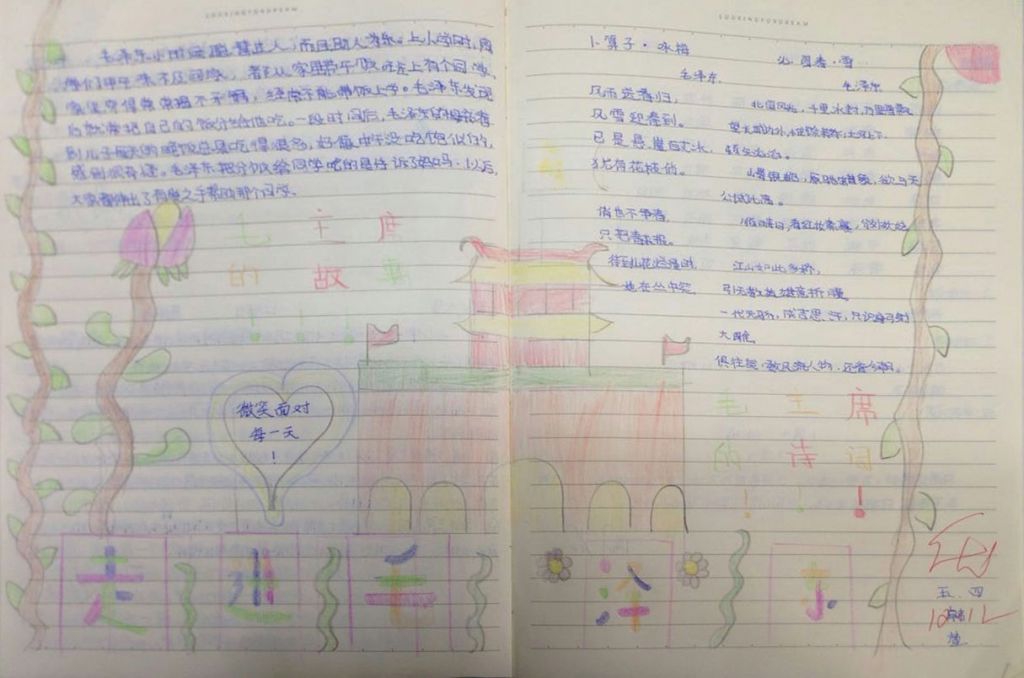 LOOKINGFORDREAM
毛泽东小时候聪慧过人,而且助人为乐。上小学时,同
学们中午来不及回家,都从家里带午饭,班上有个同学,
家里穷得
经常不能带饭上学。毛泽东发现
后就常把自己的饭分给他吃。一段时间后,毛泽东的母亲看
到儿子每天的晚饭总是吃得很多,好像中午没吃饱似的,
感到很奇怪。毛泽东把分饭给同学吃的事告诉了妈妈。以后,
大家都伸出了
之手帮助那个同学。
毛主席
的故事
!!!
微笑面对
每一天
!
LOOKINGFORDREAM
卜算子·咏梅
毛泽东
风雨送春归,
风雪迎春到。
已是悬崖百丈冰,
犹有花枝俏。
俏也不争春,
只把春来报。
待到山花烂漫时,
她在丛中笑。
沁园春·雪
毛泽东
北国风光,千里冰封,万里雪飘。
望长城内外,
顿失滔滔。
山舞银蛇,原驰蜡象,欲与天
公试比高。
须晴日,看红妆素裹,分外妖娆
江山如此多娇,
引无数英雄竞折腰。
一代天骄,成吉思汗,只识弯弓射
大雕。
俱往矣,数风流人物,还看今朝。
毛主席
的诗词
!!!
走进毛泽东
五.四